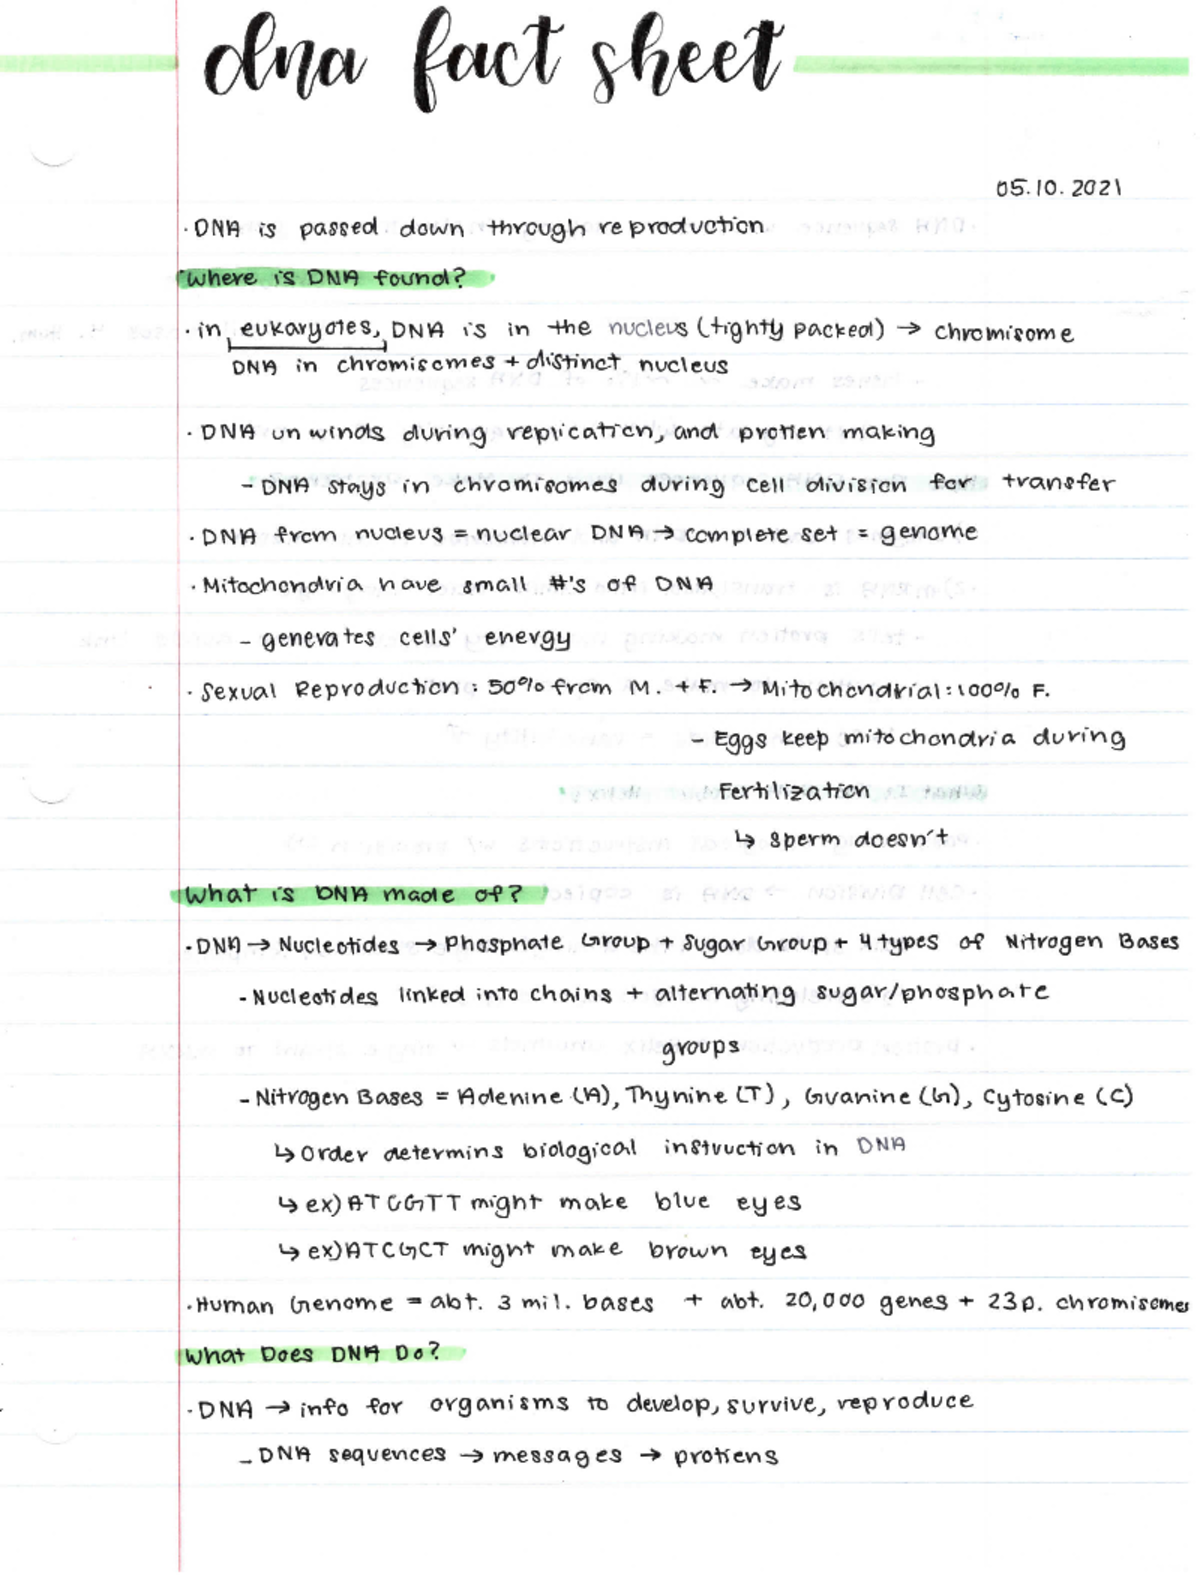 dna fact sheet
05.10.2021
· DNA is passed down through reproduction
Where is DNA found?
· in eukaryotes, DNA is in the nucleus (tightly packed) → chromisome
DNA in chromisomes + distinct nucleus
· DNA unwinds during replication, and protien making
- DNA stays in chromisomes during cell division for transfer
· DNA from nucleus = nuclear DNA → complete set = genome
· Mitochondria have small #'s of DNA
- generates cells' energy
· Sexual Reproduction: 50% from M. + F. → Mitochondrial: 100% F.
- Eggs keep mitochondria during
Fertilization
↳ sperm doesn't
What is DNA made of?
· DNA → Nucleotides → Phosphate Group + Sugar Group + 4 types of Nitrogen Bases
- Nucleotides linked into chains + alternating sugar/phosphate
groups
- Nitrogen Bases = Adenine (A), Thynine (T), Guanine (G), Cytosine (C)
↳ Order determins biological instruction in DNA
↳ ex) ATCGTT might make blue eyes
↳ ex) ATCGCT might make brown eyes
· Human Genome = abt. 3 mil. bases + abt. 20,000 genes + 23p. chromisomes
What Does DNA Do?
· DNA → info for organisms to develop, survive, reproduce
- DNA sequences → messages → protiens